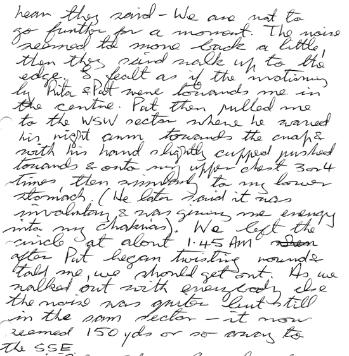 hear they said - We are not to
go further for a moment. The noise
seemed to move back a little,
then they said walk up to the
edge. I fealt as if the motions
by Rita & Pat were towards me in
the centre. Pat then pulled me
to the WSW sector where he waved
his right arm towards the crops
with his hand slightly cupped pushed
towards & onto my upper chest 3 or 4
times, then similarly to my lower
stomach. (He later said it was
involuntary & was giving me energy
into my chakras). We left the
circle at about 1.45 AM
after Pat began twisting round &
told me, we should get out. As we
walked out with everybody else
the noise was quieter but still
in the same sector - it now
seemed 150 yds or so away to
the SSE